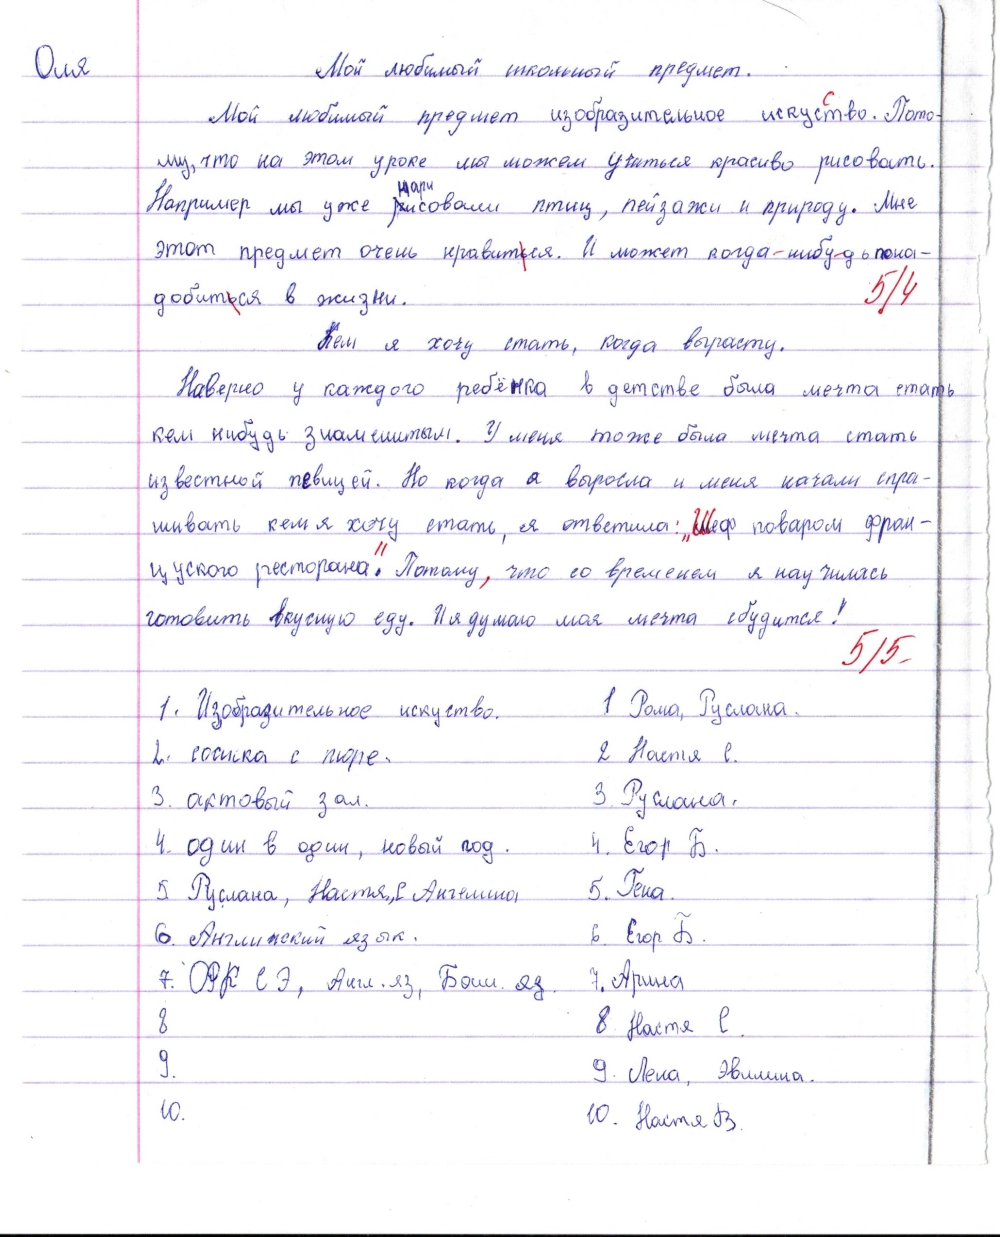 Оля
Мой любимый школьный предмет.
Мой любимый предмет изобразительное искусство. Пото-
му, что на этом уроке мы можем учиться красиво рисовать.
Например мы уже нарисовали птиц, пейзажи и природу. Мне
этот предмет очень нравиться. И может когда-нибу-дь пона-
добиться в жизни.
5/4
Кем я хочу стать, когда вырасту.
Наверно у каждого ребёнка в детстве была мечта стать
кем нибудь знаменитым. У меня тоже была мечта стать
известной певицей. Но когда я выросла и меня начали спра-
шивать кем я хочу стать, я ответила: „Шеф поваром фран-
цуского ресторана". Потому, что со временем я научилась
готовить вкусную еду. И я думаю моя мечта сбудится!
5/5-
1. Изобразительное искуство. 1 Рома, Руслана.
2. сосиска с пюре. 2 Настя С.
3. актовый зал. 3. Руслана.
4. один в один, новый год. 4. Егор Б.
5 Руслана, Настя С Ангелина 5. Гена.
6. Английский язык. 6 Егор Б.
7. ОРК С Э, Англ. яз, Баш. яз. 7. Арина
8 8. Настя С.
9. 9. Лена, Эвилина.
10. 10. Настя В.